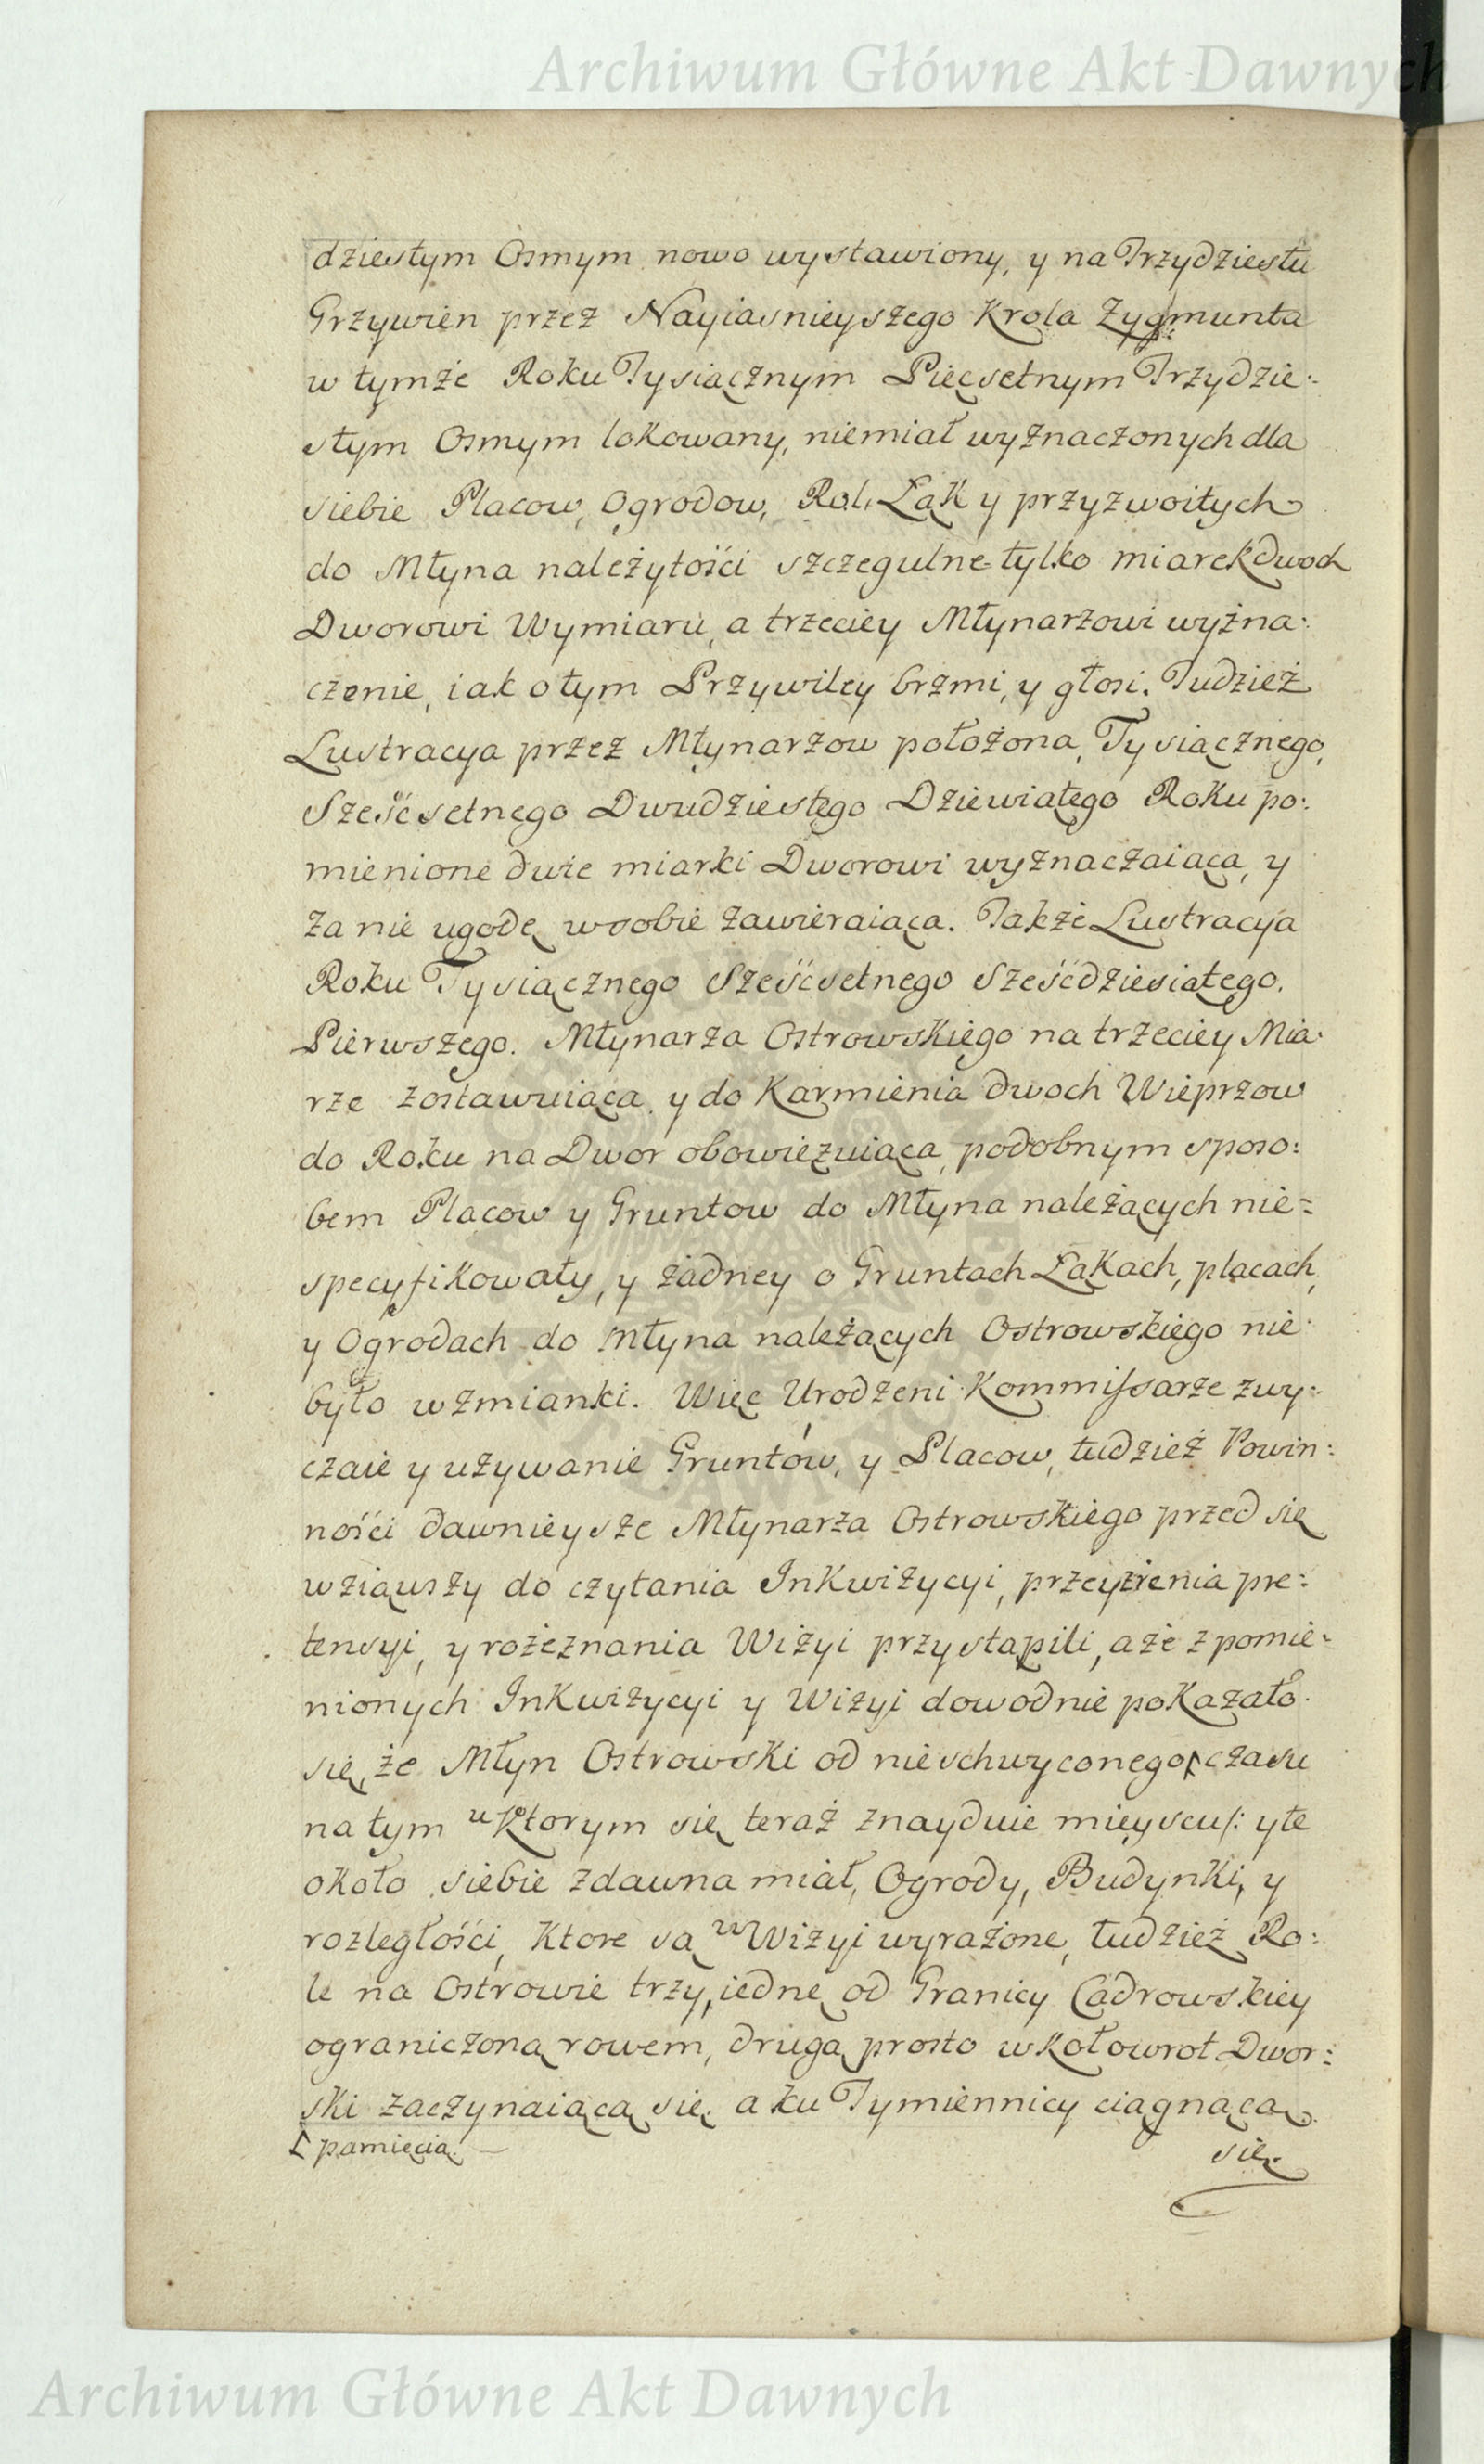 Archiwum Główne Akt Dawnych
dziestym Osmym nowo wystawiony, y na Trzydziestu
Grzywien przez Nayiasnieyszego Krola Zygmunta
w tymże Roku Tysiącznym Pięcsetnym Trzydzie:
stym Osmym lokowany, niemiał wyznaczonych dla
siebie Placow, Ogrodow, Rol, Łąk y przyzwoitych
do Młyna należytości szczegulne tylko miarek dwoch
Dworowi Wymiaru, a trzeciey Młynarzowi wyżna:
czenie, iak o tym Przywiley brzmi, y głosi. Tudzież
Lustracya przez Młynarzow położona, Tysiącznego,
Sześćsetnego Dwudziestego Dziewiątego Roku po:
mienione dwie miarki Dworowi wyznaczaiąca, y
za nie ugodę w sobie zawieraiąca. Także Lustracya
Roku Tysiącznego Sześćsetnego Sześćdziesiątego.
Pierwszego. Młynarza Ostrowskiego na trzeciey Mia:
rze zostawuiąca y do Karmienia dwoch Wieprzow
do Roku na Dwor obowięzuiąca, podobnym sposo:
bem Placow y Gruntow do Młyna należących nie=
specyfikowały, y żadney o Gruntach Łąkach, placach,
y Ogrodach do Młyna należących Ostrowskiego nie:
było wzmianki. Więc Urodzeni Kommissarze zwy:
czaie y używanie Gruntów, y Placow, tudzież Powin:
ności dawnieysze Młynarza Ostrowskiego przed się
wziąwszy do czytania Inkwizycyi, przeyżrenia pre:
tensyi, y rożeznania Wizyi przystąpili, a że z pomie:
nionych Inkwizycyi y Wizyi dowodnie pokazało.
się, że Młyn Ostrowski od nieschwyconego [ czasu
na tym w Ktorym się teraz znayduie mieyscu/: y te
około siebie zdawna miał, Ogrody, Budynki, y
rozległości, Ktore są w Wizyi wyrażone, tudzież Ro:
le na Ostrowie trzy, iednę od Granicy Cadrowskiey
ograniczoną rowem, drugą prosto w Kołowrot Dwor:
ski zaczynaiącą się, a ku Tymiennicy ciągnącą
[ pamięcią. się
Archiwum Główne Akt Dawnych